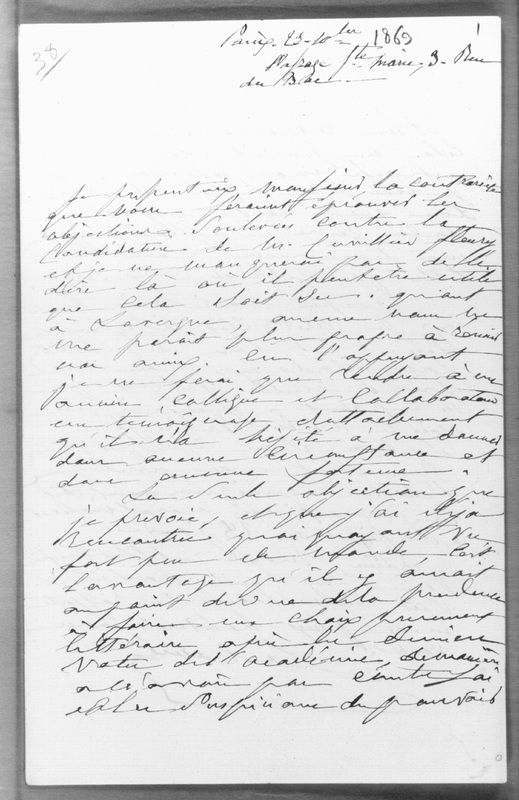 38
Paris. 23 1869
Passage Ste Marie, 3. Rue
du Bac
Je Monsieur, la contrariété
que vous feraient éprouver les
objections soulevées contre la
candidature de Mr. Cuvillier fleury
et je ne manquerai pas de le
dire là où il peut être utile
que cela soit su. quant
à Lavergne, aucun nom ne
me parait plus propre à réunir
nos amis. En l'appuyant
je ne ferai que rendre à un
ancien collègue et collaborateur
un témoignage d'attachement
qu'il n'a hésité à me donner
dans aucune circonstance et
dans aucune
La seule objection que
je prévoie, et que j'ai déjà
rencontrée quoique ayant vu
fort peu de monde, c'est
l'avantage qu'il y aurait
au point de vue de la prudence
à faire un choix purement
littéraire après le dernier
vote de l'académie, de manière
à n'avoir pas
du pouvoir